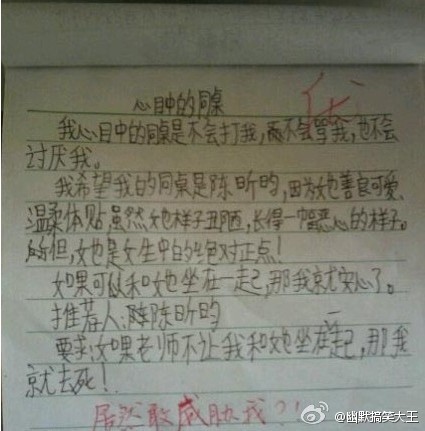 心目中的同桌
优-
我心目中的同桌是不会打我,不会骂我,也不会
讨厌我。
我希望我的同桌是陈昕昀,因为她善良可爱、
温柔体贴,虽然她样子丑陋,长得一幅恶心的样子。
但,她也是女生中的绝对正点!
如果可以和她坐在一起,那我就安心了。
推荐人:陈昕昀
要求:如果老师不让我和她坐在一起,那我
就去死!
居然敢威胁我?!
@幽默搞笑大王